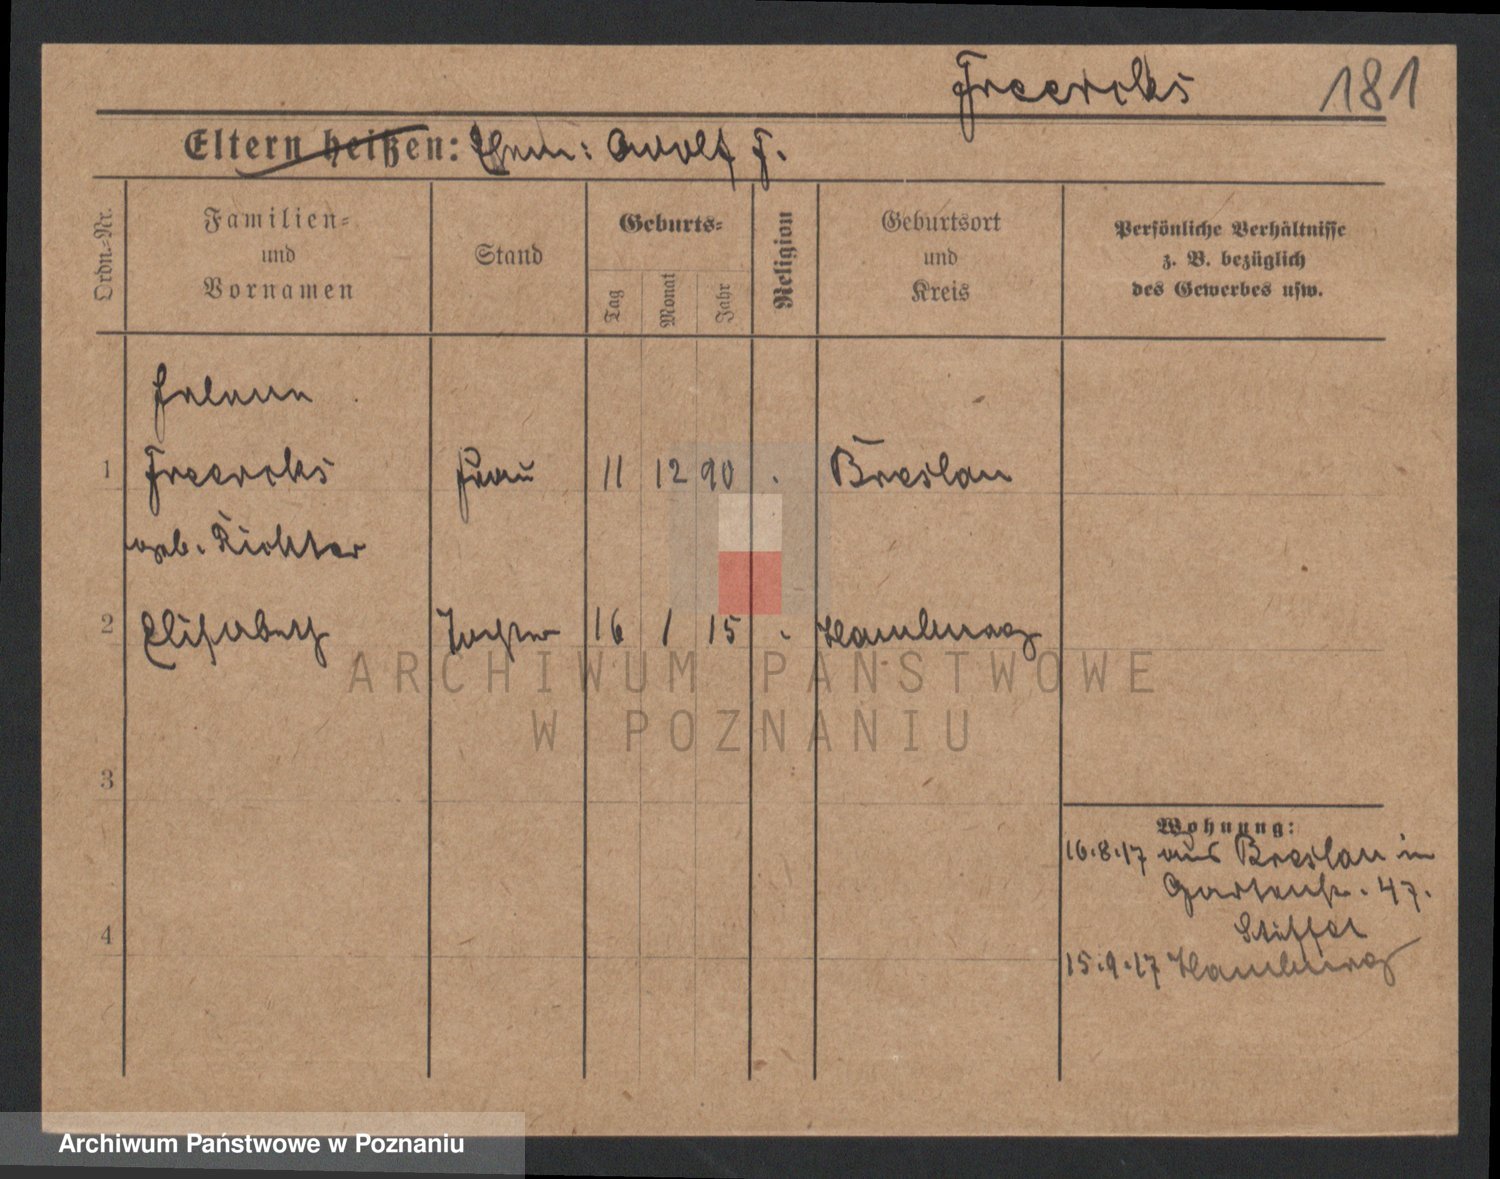 Freercks 181
Eltern heißen: Ehem: Adolf F.
Ordn.=Nr.
Familien=
und
Vornamen
Stand
Geburts=
Tag
Monat
Jahr
Religion
Geburtsort
und
Kreis
Persönliche Verhältnisse
z. B. bezüglich
des Gewerbes usw.
Helene
1 Freercks Frau 11 12 90 . Breslau
geb. Richter
2 Elisabeth Tochter 16 1 15 . Hamburg
3
Wohnung:
16.8.17 aus Breslau in
Gartenstr. 47.
4
15.9.17 Hamburg
ARCHIWUM PAŃSTWOWE
W POZNANIU
Archiwum Państwowe w Poznaniu